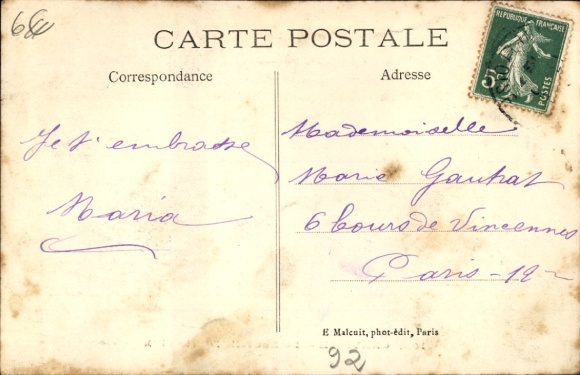 6
CARTE POSTALE
Correspondance
Adresse
RÉPUBLIQUE FRANÇAISE
5c
POSTES
Je t'embrasse
Maria
Mademoiselle
Marie Gautrat
6 Cours de Vincennes
Paris - 12
E Malcuit, phot-édit, Paris
92